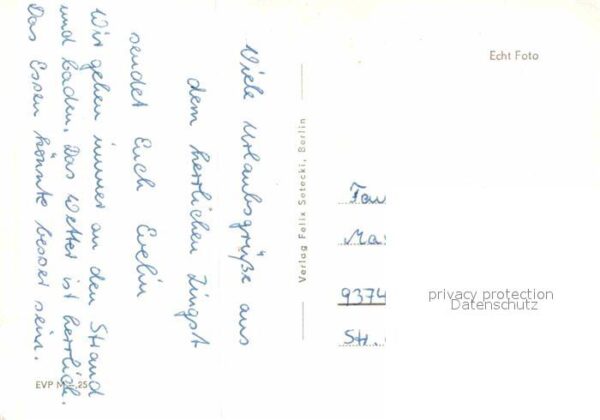 Viele Urlaubsgrüße aus
dem herrlichen Zingst
sendet Euch Evelin
Wir gehen immer an den Strand
und baden. Das Wetter ist herrlich.
Das Essen könnte besser sein.
EVP M -,25
Verlag Felix Setecki, Berlin
Echt Foto
Fam
Ma
9374
Str.
privacy protection
Datenschutz